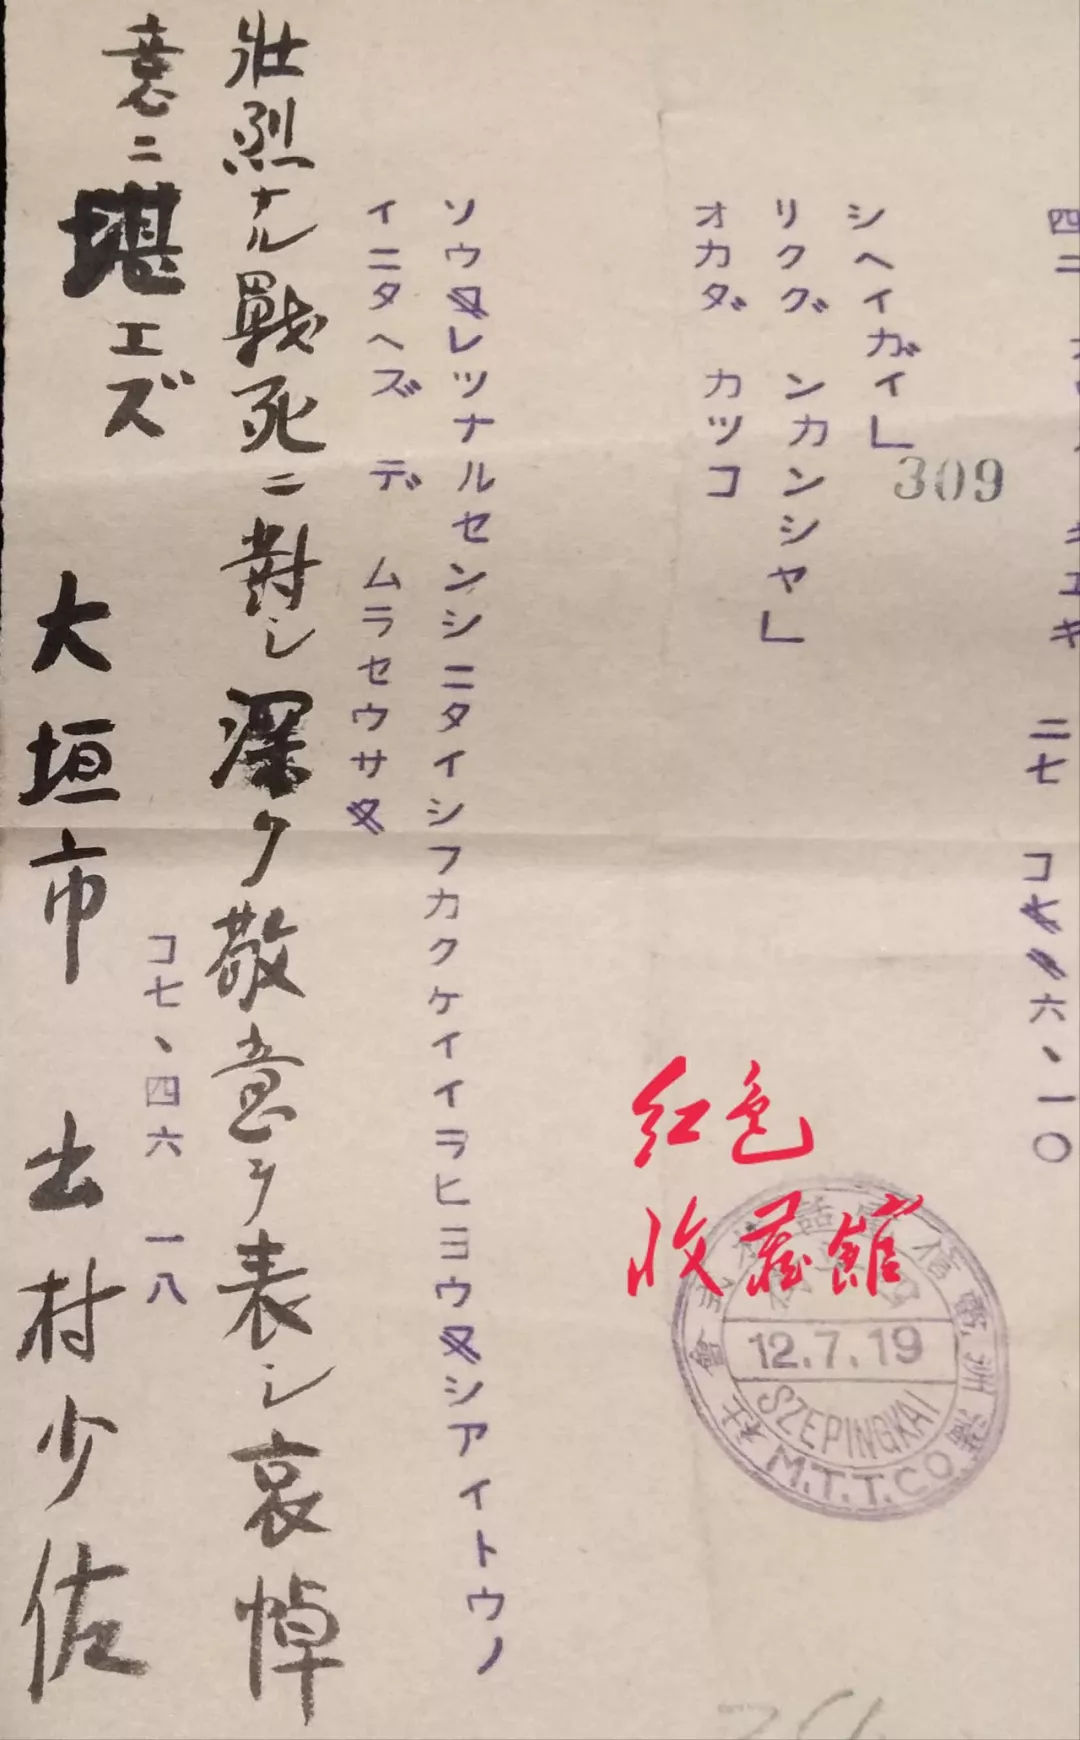 二七 コ 六、一〇
シヘイガイ」
309
リクグ ンカンシヤ」
オカダ カツコ
ソウレツナルセンシニタイシフカクケイイラヒヨウシアイトウノ
イニタヘズ デ ムラセウサ
壯烈ナル戰死ニ對シ深ク敬意ヲ表シ哀悼
意ニ堪エズ
コ七、四六 一八
大垣市 出村少佐
红色
收藏館
滿洲電信電話株式會社
12.7.19
SZEPINGKAI
M.T.T.CO.